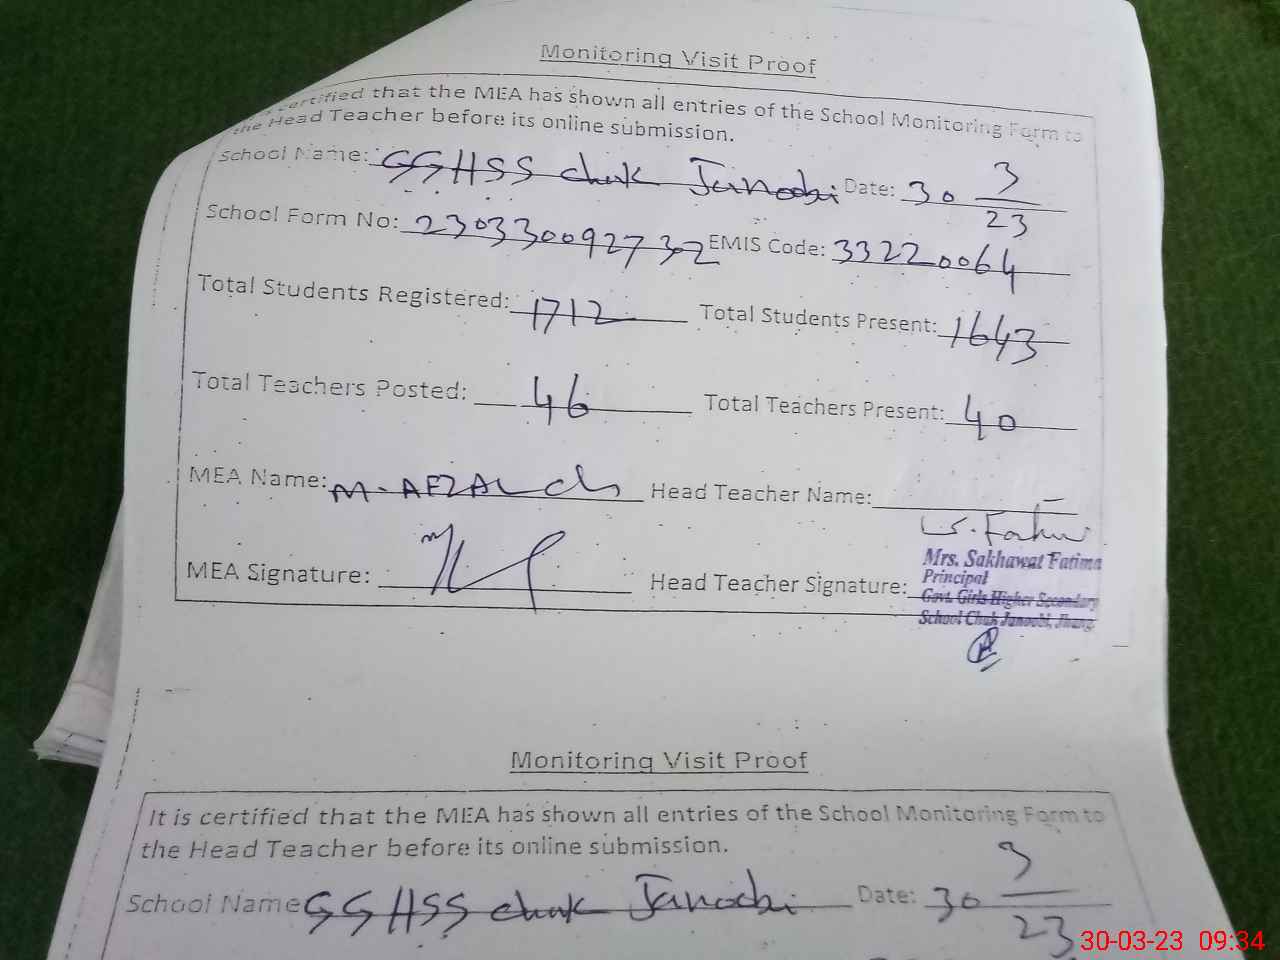 Monitoring Visit Proof
certified that the MEA has shown all entries of the School Monitoring Form to
the Head Teacher before its online submission.
School Name: GGHSS chuk Janoobi Date: 30 3/23
School Form No: 230330092732 EMIS Code: 33220064
Total Students Registered: 1712 Total Students Present: 1643
Total Teachers Posted: 46 Total Teachers Present: 40
MEA Name: M. AFZAL Head Teacher Name:
MEA Signature: Head Teacher Signature:
Mrs. Sakhawat Fatima
Principal
Govt. Girls Higher Secondary
School Chuk Janoobi, Jhang
Monitoring Visit Proof
It is certified that the MEA has shown all entries of the School Monitoring Form to
the Head Teacher before its online submission.
School Name GGHSS chuk Janoobi Date: 30 3/23
30-03-23 09:34